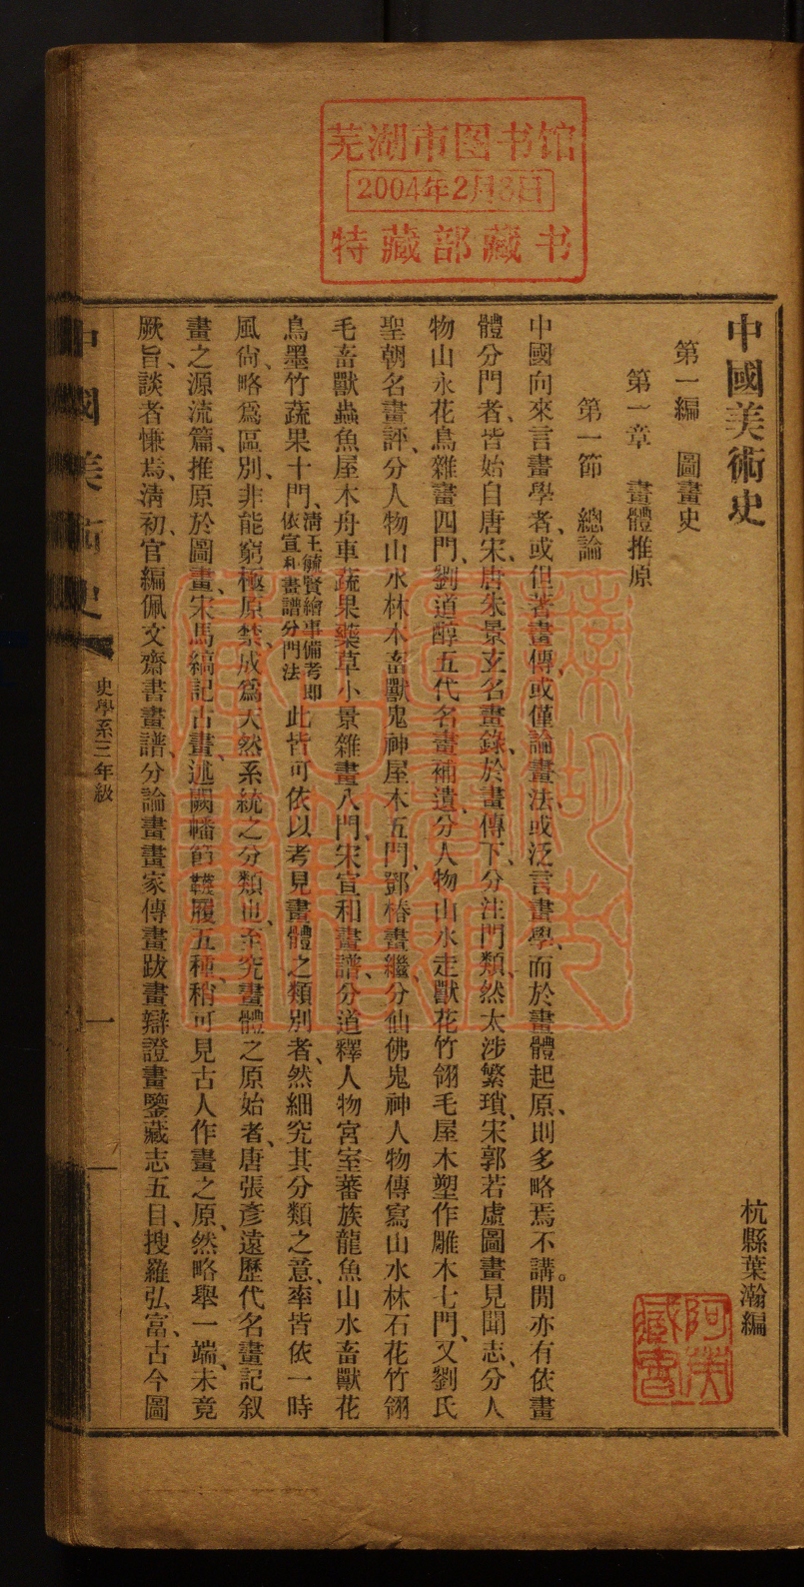 芜湖市图书馆
2004年2月3日
特藏部藏书
中國美術史
杭縣葉瀚編
第一編　圖畫史
第一章　畫體推原
第一節　總論
中國向來言畫學者、或但著畫傳、或僅論畫法、或泛言畫學、而於畫體起原、則多略焉不講。閒亦有依畫
體分門者、皆始自唐宋、唐朱景玄名畫錄、於畫傳下、分注門類、然太涉繁瑣、宋郭若虛圖畫見聞志、分人
物山水花鳥雜畫四門、劉道醇五代名畫補遺、分人物山水走獸花竹翎毛屋木塑作雕木七門、又劉氏
聖朝名畫評、分人物山水林木畜獸鬼神屋木五門、鄧椿畫繼、分仙佛鬼神人物傳寫山水林石花竹翎
毛畜獸蟲魚屋木舟車蔬果藥草小景雜畫八門、宋宣和畫譜、分道釋人物宮室蕃族龍魚山水畜獸花
鳥墨竹蔬果十門、清王毓賢繪事備考即依宣和畫譜分門法此皆可依以考見畫體之類別者、然細究其分類之意、率皆依一時
風尙、略爲區別、非能窮極原禁、成爲天然系統之分類也、至究畫體之原始者、唐張彥遠歷代名畫記叙
畫之源流篇、推原於圖畫、宋馬縞記古畫、述闕幡節韈履五種、稍可見古人作畫之原、然略舉一端、未竟
厥旨、談者慊焉、淸初、官編佩文齋書畫譜、分論畫畫家傳畫跋畫辯證畫鑒藏志五目、搜羅弘富、古今圖
中國美術史
史學系三年級
一